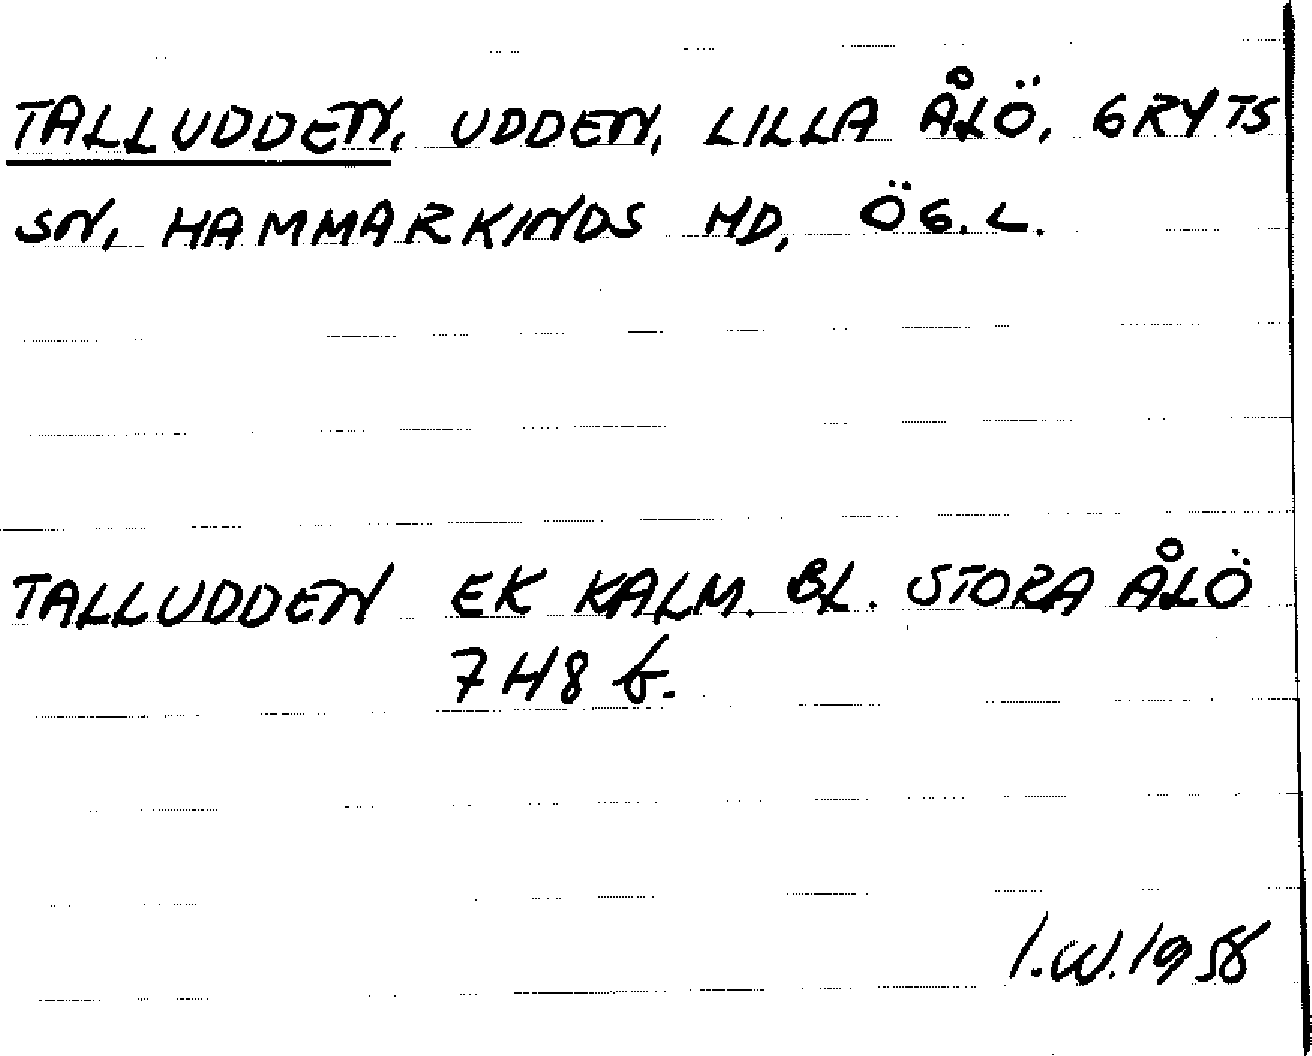 TALLUDDEN, UDDEN, LILLA ÅLÖ, GRYTS
SN, HAMMARKINDS HD, ÖG.L.
TALLUDDEN EK KALM. BL. STORA ÅLÖ
7H8 b.
I.W. 1958